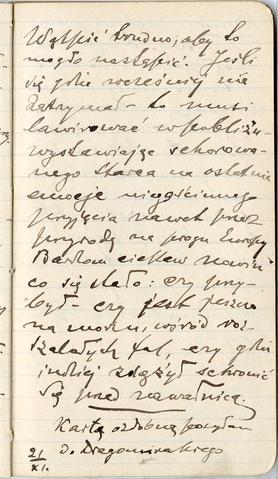 Wątpić trudno, aby to
mogło nastąpić. Jeśli
się gdzie wcześniej nie
zatrzymał - to musi
lawirować w pobliżu
wystawiając schorowa-
nego starca na ostatnie
emocje niegościnnego
przyjęcia nawet przez
przyrodę na progu Europy
Bardzom ciekaw
co się stało: czy przy-
był - czy jest jeszcze
na morzu, wśród roz-
szalałych fal, czy gdzie
indziej zdążył schronić
się przed nawałnicą.
Kartę ozdobną posyłam
d. Dragomireckiego
21/XI.